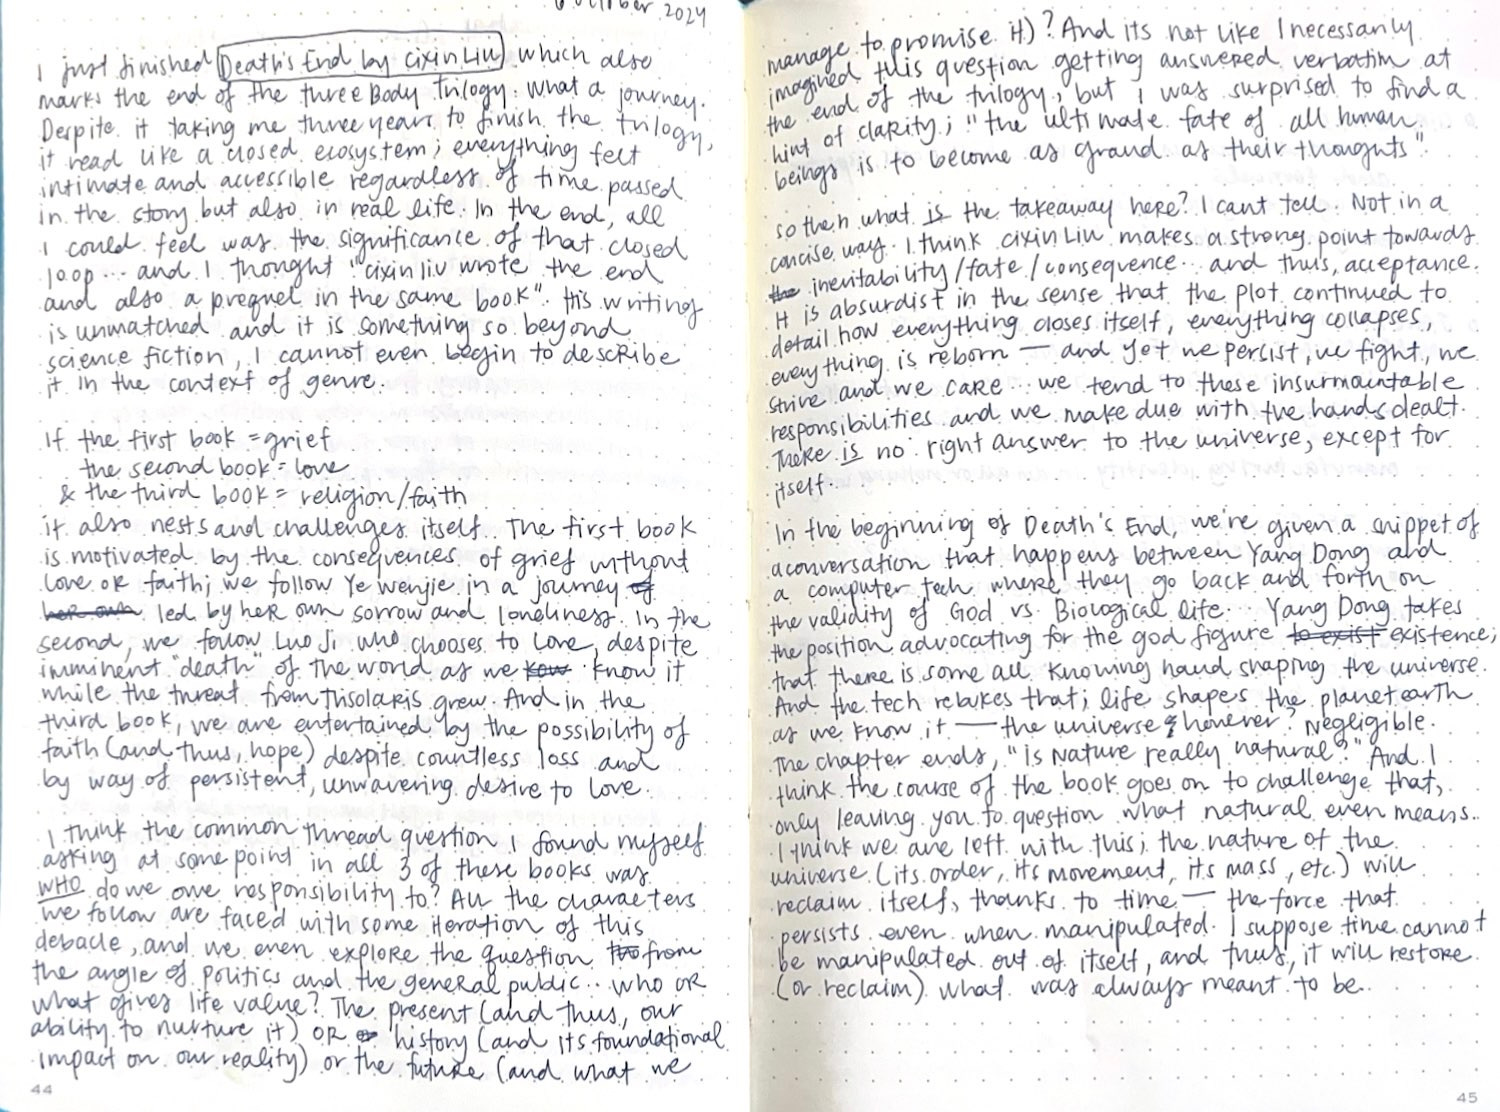 October 2024
I just finished Death's End by cixin Liu which also
marks the end of the three Body trilogy. What a journey.
Despite it taking me three years to finish the trilogy,
it read like a closed ecosystem; everything felt
intimate and accessible regardless of time passed
in the story but also in real life. In the end, all
I could feel was the significance of that closed
loop... and I thought "cixin liu wrote the end
and also a prequel in the same book". His writing
is unmatched and it is something so beyond
science fiction, I cannot even begin to describe
it in the context of genre.
If the first book = grief
the second book = love
& the third book = religion/faith
it also nests and challenges itself. The first book
is motivated by the consequences of grief without
love or faith; we follow Ye wenjie in a journey of
her own led by her own sorrow and loneliness. In the
second, we follow Luo Ji who chooses to love, despite
imminent "death" of the world as we kow know it
while the threat from Trisolaris grew. And in the
third book, we are entertained by the possibility of
faith (and thus, hope) despite countless loss and
by way of persistent, unwavering desire to love.
I think the common thread question I found myself
asking at some point in all 3 of these books was
WHO do we owe responsibility to? All the characters
we follow are faced with some iteration of this
debacle, and we even explore the question from
the angle of politics and the general public.. who or
what gives life value? The present (and thus, our
ability to nurture it) OR history (and its foundational
impact on our reality) or the future (and what we
44
manage to promise it)? And its not like I necessarily
imagined this question getting answered verbatim at
the end of the trilogy, but I was surprised to find a
hint of clarity; "the ultimate fate of all human
beings is to become as grand as their thoughts"
so then what is the takeaway here? I cant tell. Not in a
concise way. I think cixin Liu makes a strong point towards
the inevitability/fate/consequence... and thus, acceptance.
It is absurdist in the sense that the plot continued to
detail how everything closes itself, everything collapses,
everything is reborn — and yet we persist, we fight, we
strive and we care... we tend to these insurmountable
responsibilities and we make due with the hands dealt.
There is no right answer to the universe, except for
itself.
In the beginning of Death's End, we're given a snippet of
a conversation that happens between Yang Dong and
a computer tech where they go back and forth on
the validity of God vs. Biological life. Yang Dong takes
the position advocating for the god figure to exist existence;
that there is some all knowing hand shaping the universe.
And the tech rebukes that; life shapes the planet earth
as we know it — the universe however? Negligible.
The chapter ends, "is Nature really natural?" And I
think the course of the book goes on to challenge that,
only leaving you to question what natural even means..
I think we are left with this; the nature of the
universe (its order, its movement, its mass, etc.) will
reclaim itself, thanks to time — the force that
persists even when manipulated. I suppose time cannot
be manipulated out of itself, and thus, it will restore
(or reclaim) what was always meant to be.
45